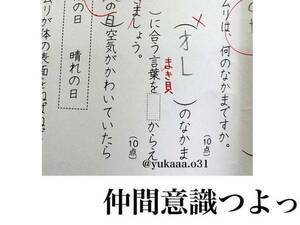 ムリは、何のなかまですか。
(10点)
(オレ)のなかま
まき貝
)に合う言葉を からえ
ましょう。
(10点)
の日空気がかわいていたら
の日 晴れの日
ムリが体の表面をねばねば
@yukaaa.o31
仲間意識つよっ